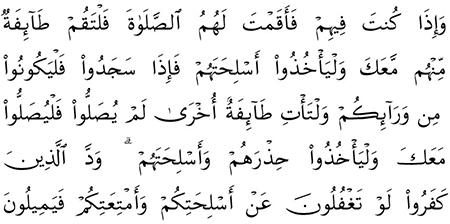 وَإِذَا كُنتَ فِيهِمْ فَأَقَمْتَ لَهُمُ ٱلصَّلَوٰةَ فَلْتَقُمْ طَآئِفَةٌ
مِّنْهُم مَّعَكَ وَلْيَأْخُذُوٓا۟ أَسْلِحَتَهُمْ فَإِذَا سَجَدُوا۟ فَلْيَكُونُوا۟
مِن وَرَآئِكُمْ وَلْتَأْتِ طَآئِفَةٌ أُخْرَىٰ لَمْ يُصَلُّوا۟ فَلْيُصَلُّوا۟
مَعَكَ وَلْيَأْخُذُوا۟ حِذْرَهُمْ وَأَسْلِحَتَهُمْ ۗ وَدَّ ٱلَّذِينَ
كَفَرُوا۟ لَوْ تَغْفُلُونَ عَنْ أَسْلِحَتِكُمْ وَأَمْتِعَتِكُمْ فَيَمِيلُونَ